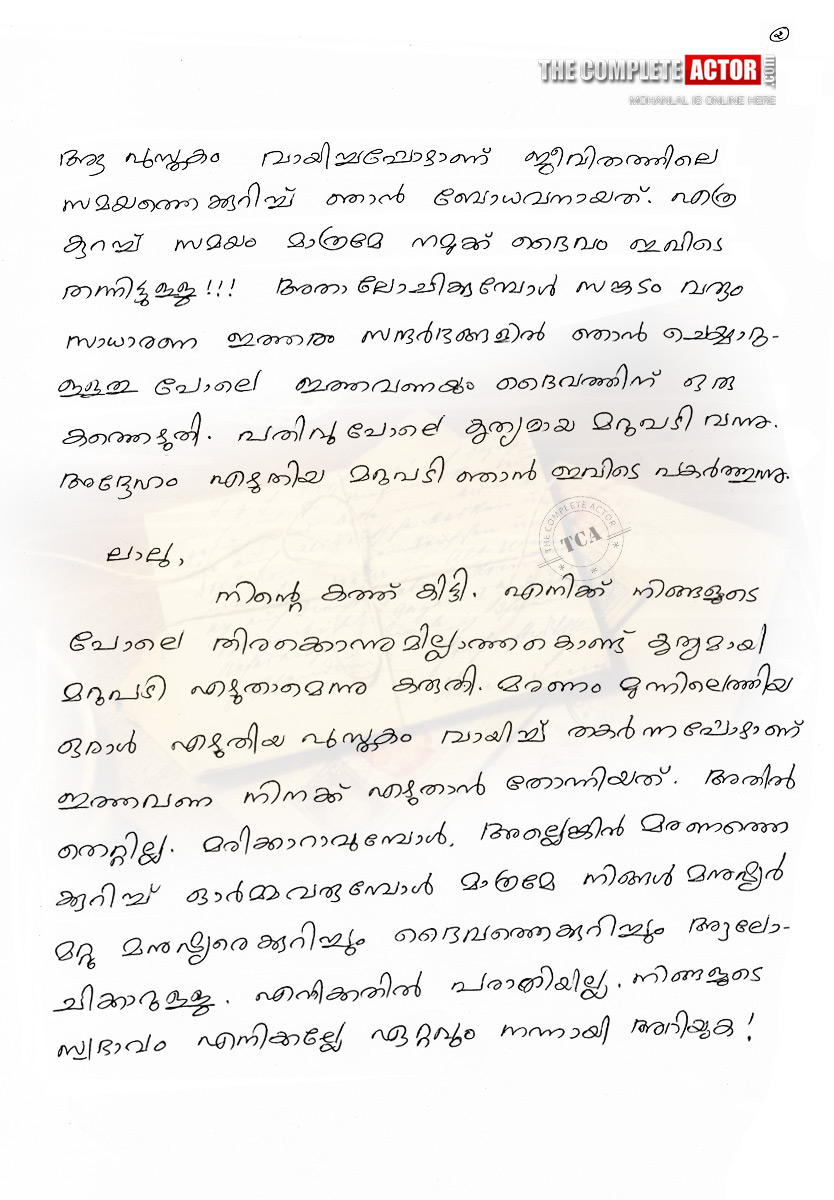 ൨
THE COMPLETE ACTOR .com
MOHANLAL IS ONLINE HERE
ആ പുസ്തകം വായിച്ചപ്പോഴാണ് ജീവിതത്തിലെ
സമയത്തെക്കുറിച്ച് ഞാൻ ബോധവനായത്. എത്ര
കുറച്ച് സമയം മാത്രമേ നമുക്ക് ദൈവം ഇവിടെ
തന്നിട്ടുള്ളു!!! അതാലോചിക്കുമ്പോൾ സങ്കടം വരും
സാധാരണ ഇത്തരം സന്ദർഭങ്ങളിൽ ഞാൻ ചെയ്യാറു-
ള്ളതു പോലെ ഇത്തവണയും ദൈവത്തിന് ഒരു
കത്തെഴുതി. പതിവുപോലെ കൃത്യമായ മറുപടി വന്നു.
അദ്ദേഹം എഴുതിയ മറുപടി ഞാൻ ഇവിടെ പകർത്തുന്നു.
THE COMPLETE ACTOR
TCA
ലാലു,
നിന്റെ കത്ത് കിട്ടി. എനിക്ക് നിങ്ങളുടെ
പോലെ തിരക്കൊന്നുമില്ലാത്തകൊണ്ട് കൃത്യമായി
മറുപടി എഴുതാമെന്നു കരുതി. മരണം മുന്നിലെത്തിയ
ഒരാൾ എഴുതിയ പുസ്തകം വായിച്ച് തകർന്നപ്പോഴാണ്
ഇത്തവണ നിനക്ക് എഴുതാൻ തോന്നിയത്. അതിൽ
തെറ്റില്ല. മരിക്കാറാവുമ്പോൾ, അല്ലെങ്കിൽ മരണത്തെ
ക്കുറിച്ച് ഓർമ്മവരുമ്പോൾ മാത്രമേ നിങ്ങൾ മനുഷ്യർ
മറ്റു മനുഷ്യരെക്കുറിച്ചും ദൈവത്തെക്കുറിച്ചും ആലോ-
ചിക്കാറുള്ളു. എനിക്കതിൽ പരാതിയില്ല. നിങ്ങളുടെ
സ്വഭാവം എനിക്കല്ലേ ഏറ്റവും നന്നായി അറിയുക!